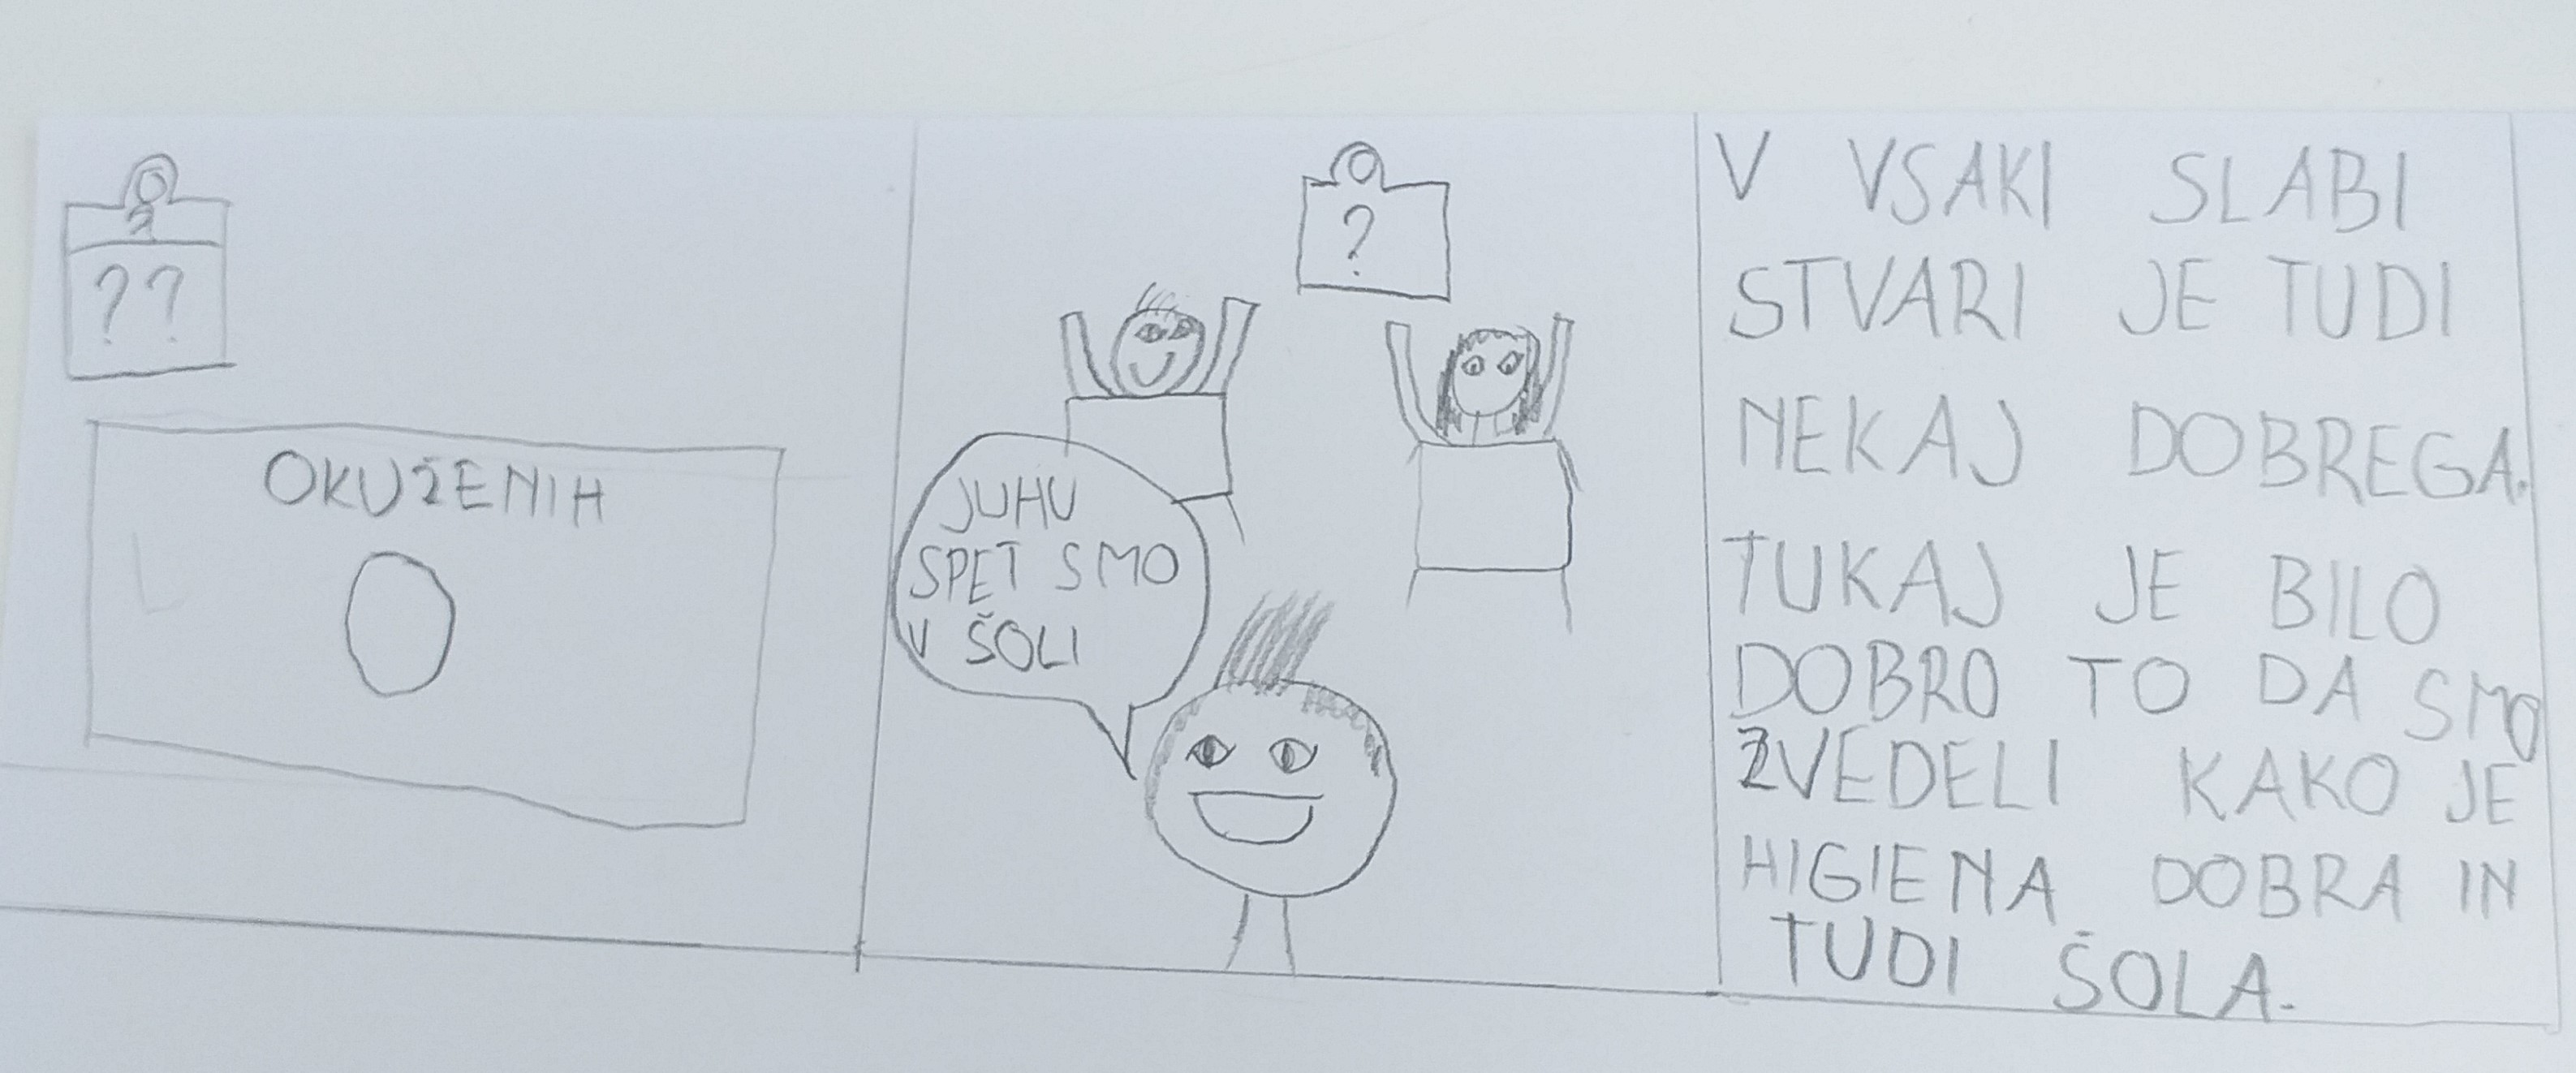 ?
??
OKUŽENIH
0
?
JUHU
SPET SMO
V ŠOLI
V VSAKI SLABI
STVARI JE TUDI
NEKAJ DOBREGA.
TUKAJ JE BILO
DOBRO TO DA SMO
ZVEDELI KAKO JE
HIGIENA DOBRA IN
TUDI ŠOLA.